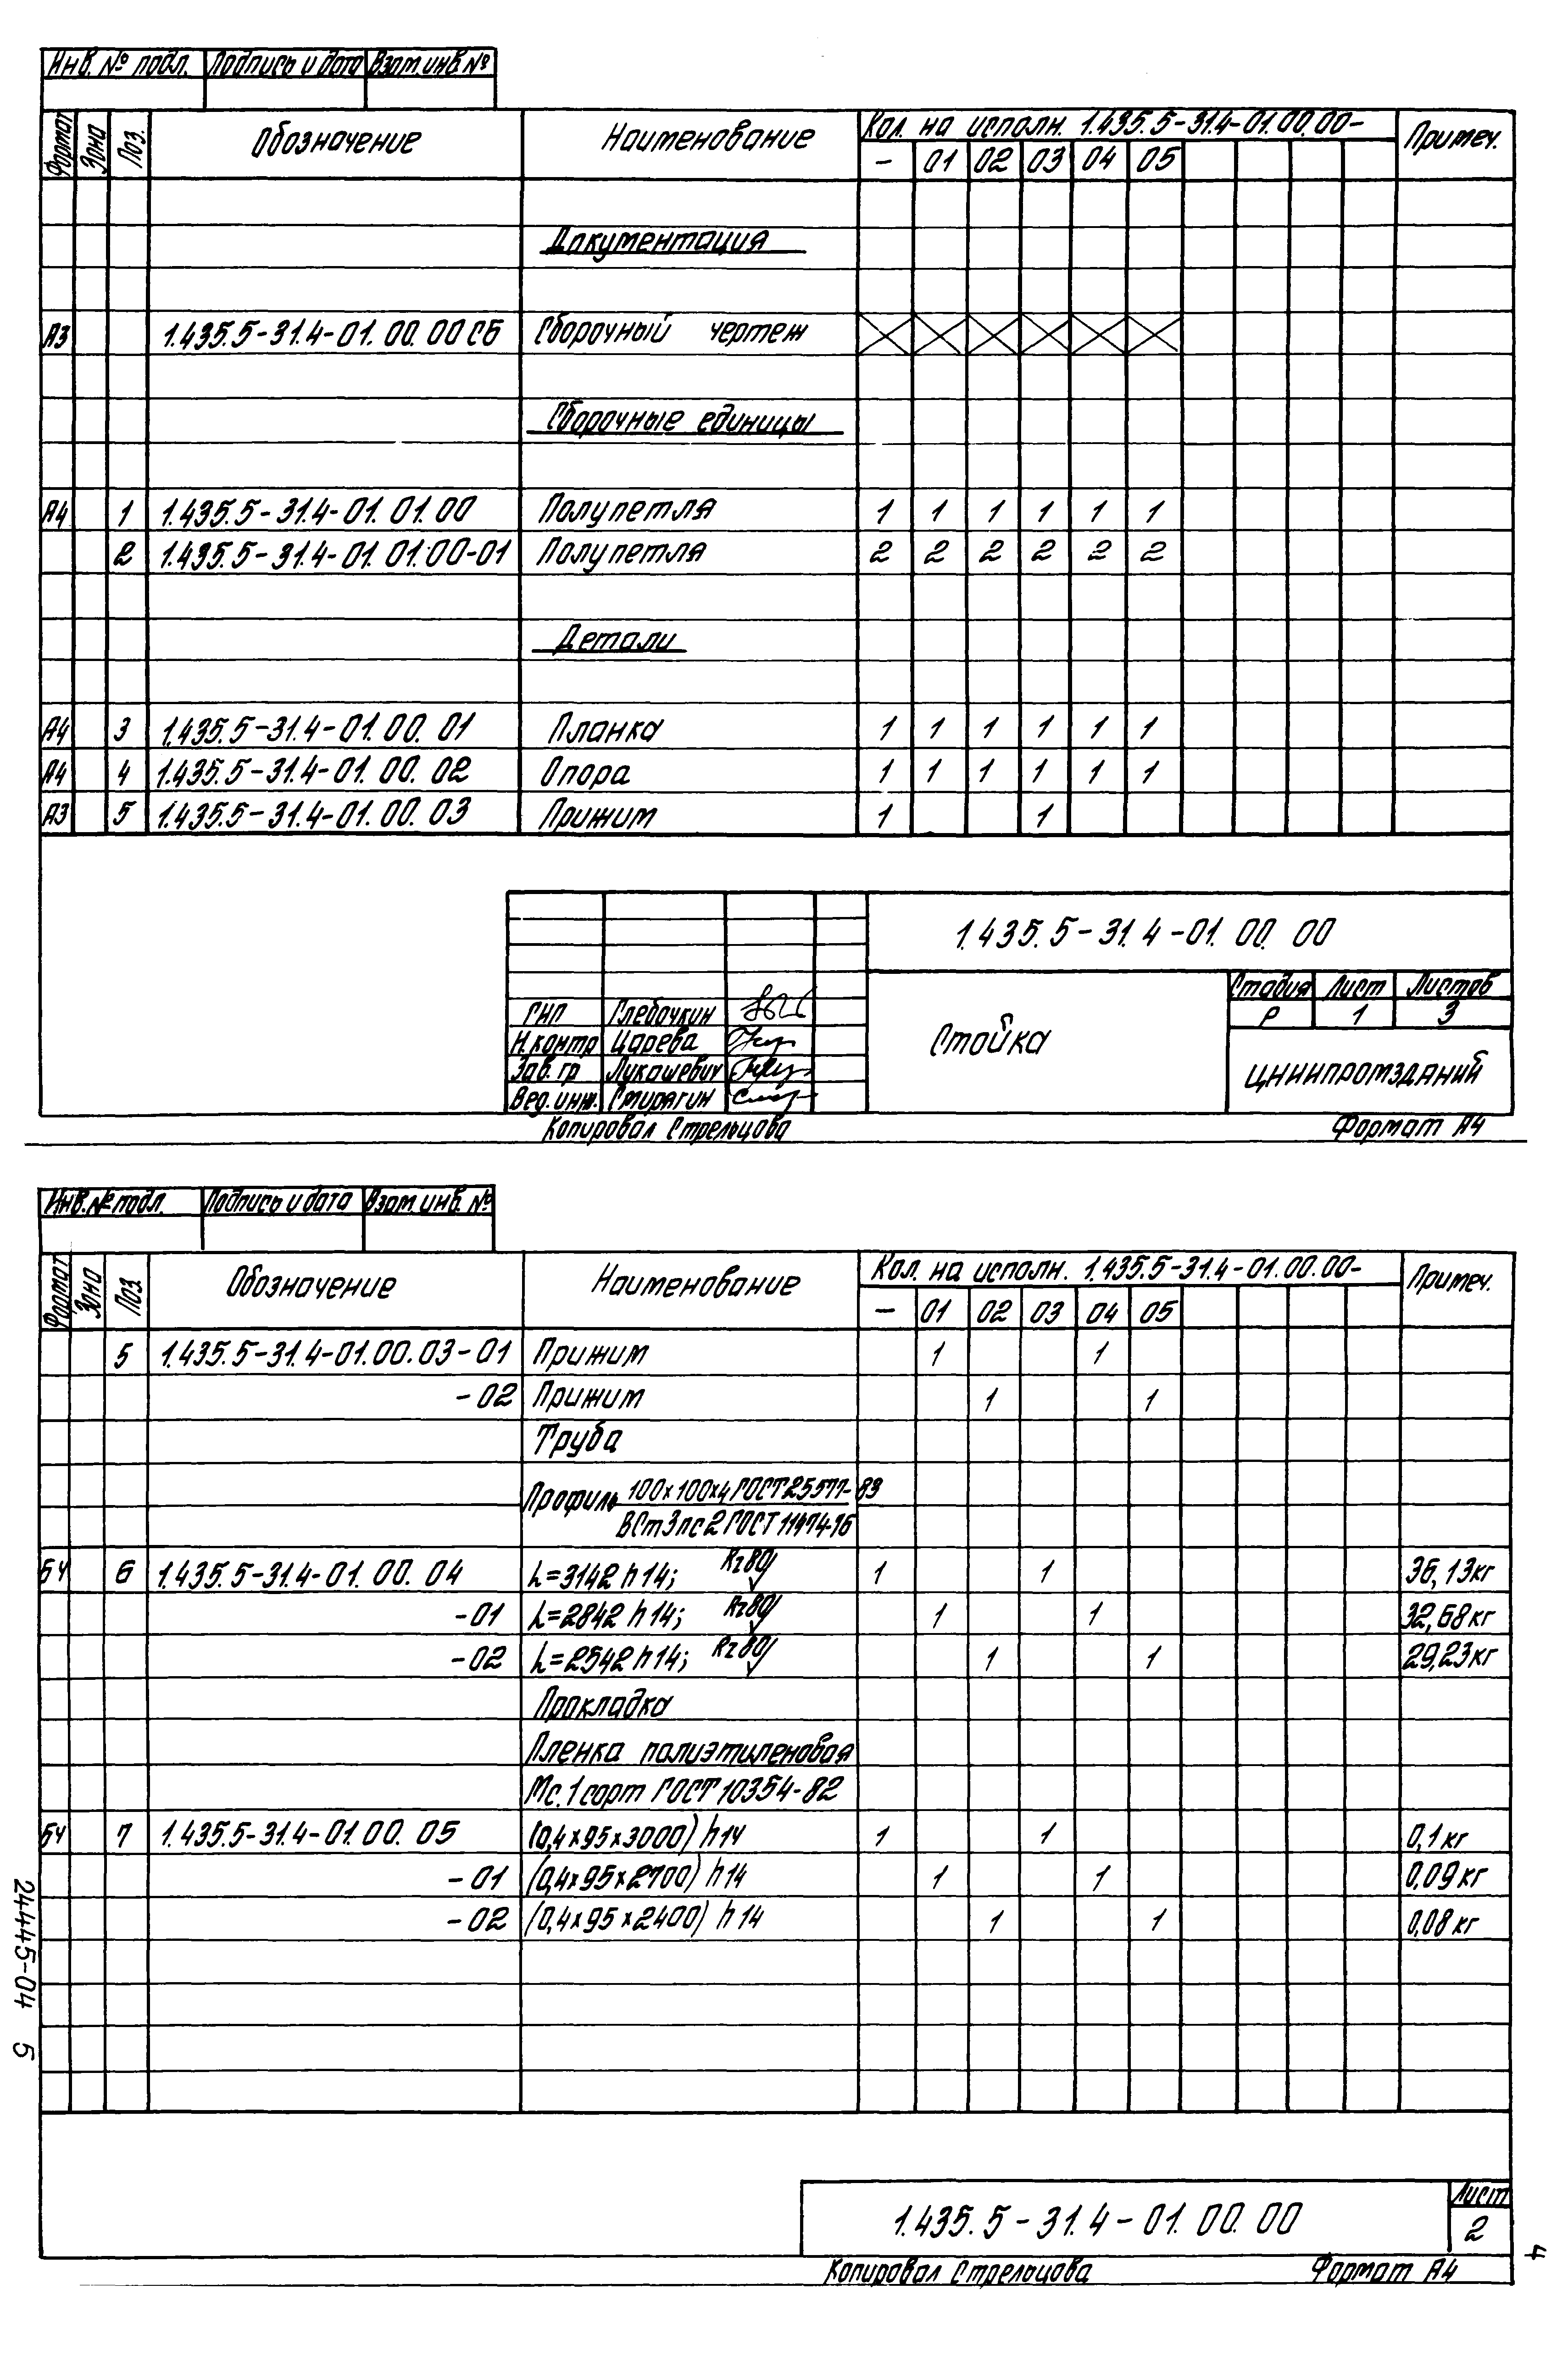 Инв. № подл. Подпись и дата Взам. инв №
Формат Зона Поз. Обозначение Наименование Кол. на исполн. 1.435.5-31.4-01.00.00- Примеч.
- 01 02 03 04 05
Документация
А3 1.435.5-31.4-01.00.00СБ Сборочный чертеж
Сборочные единицы
А4 1 1.435.5-31.4-01.01.00 Полупетля 1 1 1 1 1 1
2 1.435.5-31.4-01.01.00-01 Полупетля 2 2 2 2 2 2
Детали
А4 3 1.435.5-31.4-01.00.01 Планка 1 1 1 1 1 1
А4 4 1.435.5-31.4-01.00.02 Опора 1 1 1 1 1 1
А3 5 1.435.5-31.4-01.00.03 Прижим 1 1
1.435.5-31.4-01.00.00
Стадия Лист Листов
ГИП Глебочкин Р 1 3
Н.контр Царева Стойка
Зав. гр Лукашевич ЦНИИПРОМЗДАНИЙ
Вед. инж. Стирагин
Копировал Стрельцова Формат А4
Инв.№подл. Подпись и дата Взам инв. №
Формат Зона Поз Обозначение Наименование Кол. на исполн. 1.435.5-31.4-01.00.00- Примеч.
- 01 02 03 04 05
5 1.435.5-31.4-01.00.03-01 Прижим 1 1
-02 Прижим 1 1
Труба
Профиль 100×100×4 ГОСТ 25577-83
ВСт3пс2 ГОСТ 11474-76
БЧ 6 1.435.5-31.4-01.00.04 L=3142 h14; Rz80 1 1 36,13кг
-01 L=2842 h14; Rz80 1 1 32,68кг
-02 L=2542 h14; Rz80 1 1 29,23кг
Прокладка
Пленка полиэтиленовая
Мс.1сорт ГОСТ 10354-82
БЧ 7 1.435.5-31.4-01.00.05 (0,4×95×3000) h14 1 1 0,1кг
-01 (0,4×95×2700) h14 1 1 0,09кг
-02 (0,4×95×2400) h14 1 1 0,08кг
24445-04 5
1.435.5-31.4-01.00.00 Лист
2
4
Копировал Стрельцова Формат А4